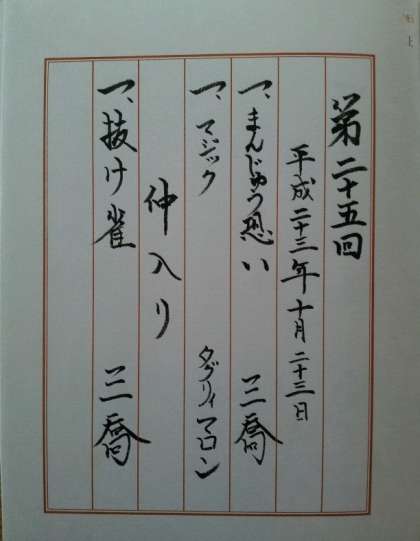 第二十五回
平成二十三年十月二十三日
一、まんじゅう恐い 三喬
一、マジック タグリィマロン
仲入り
一、抜け雀 三喬
上